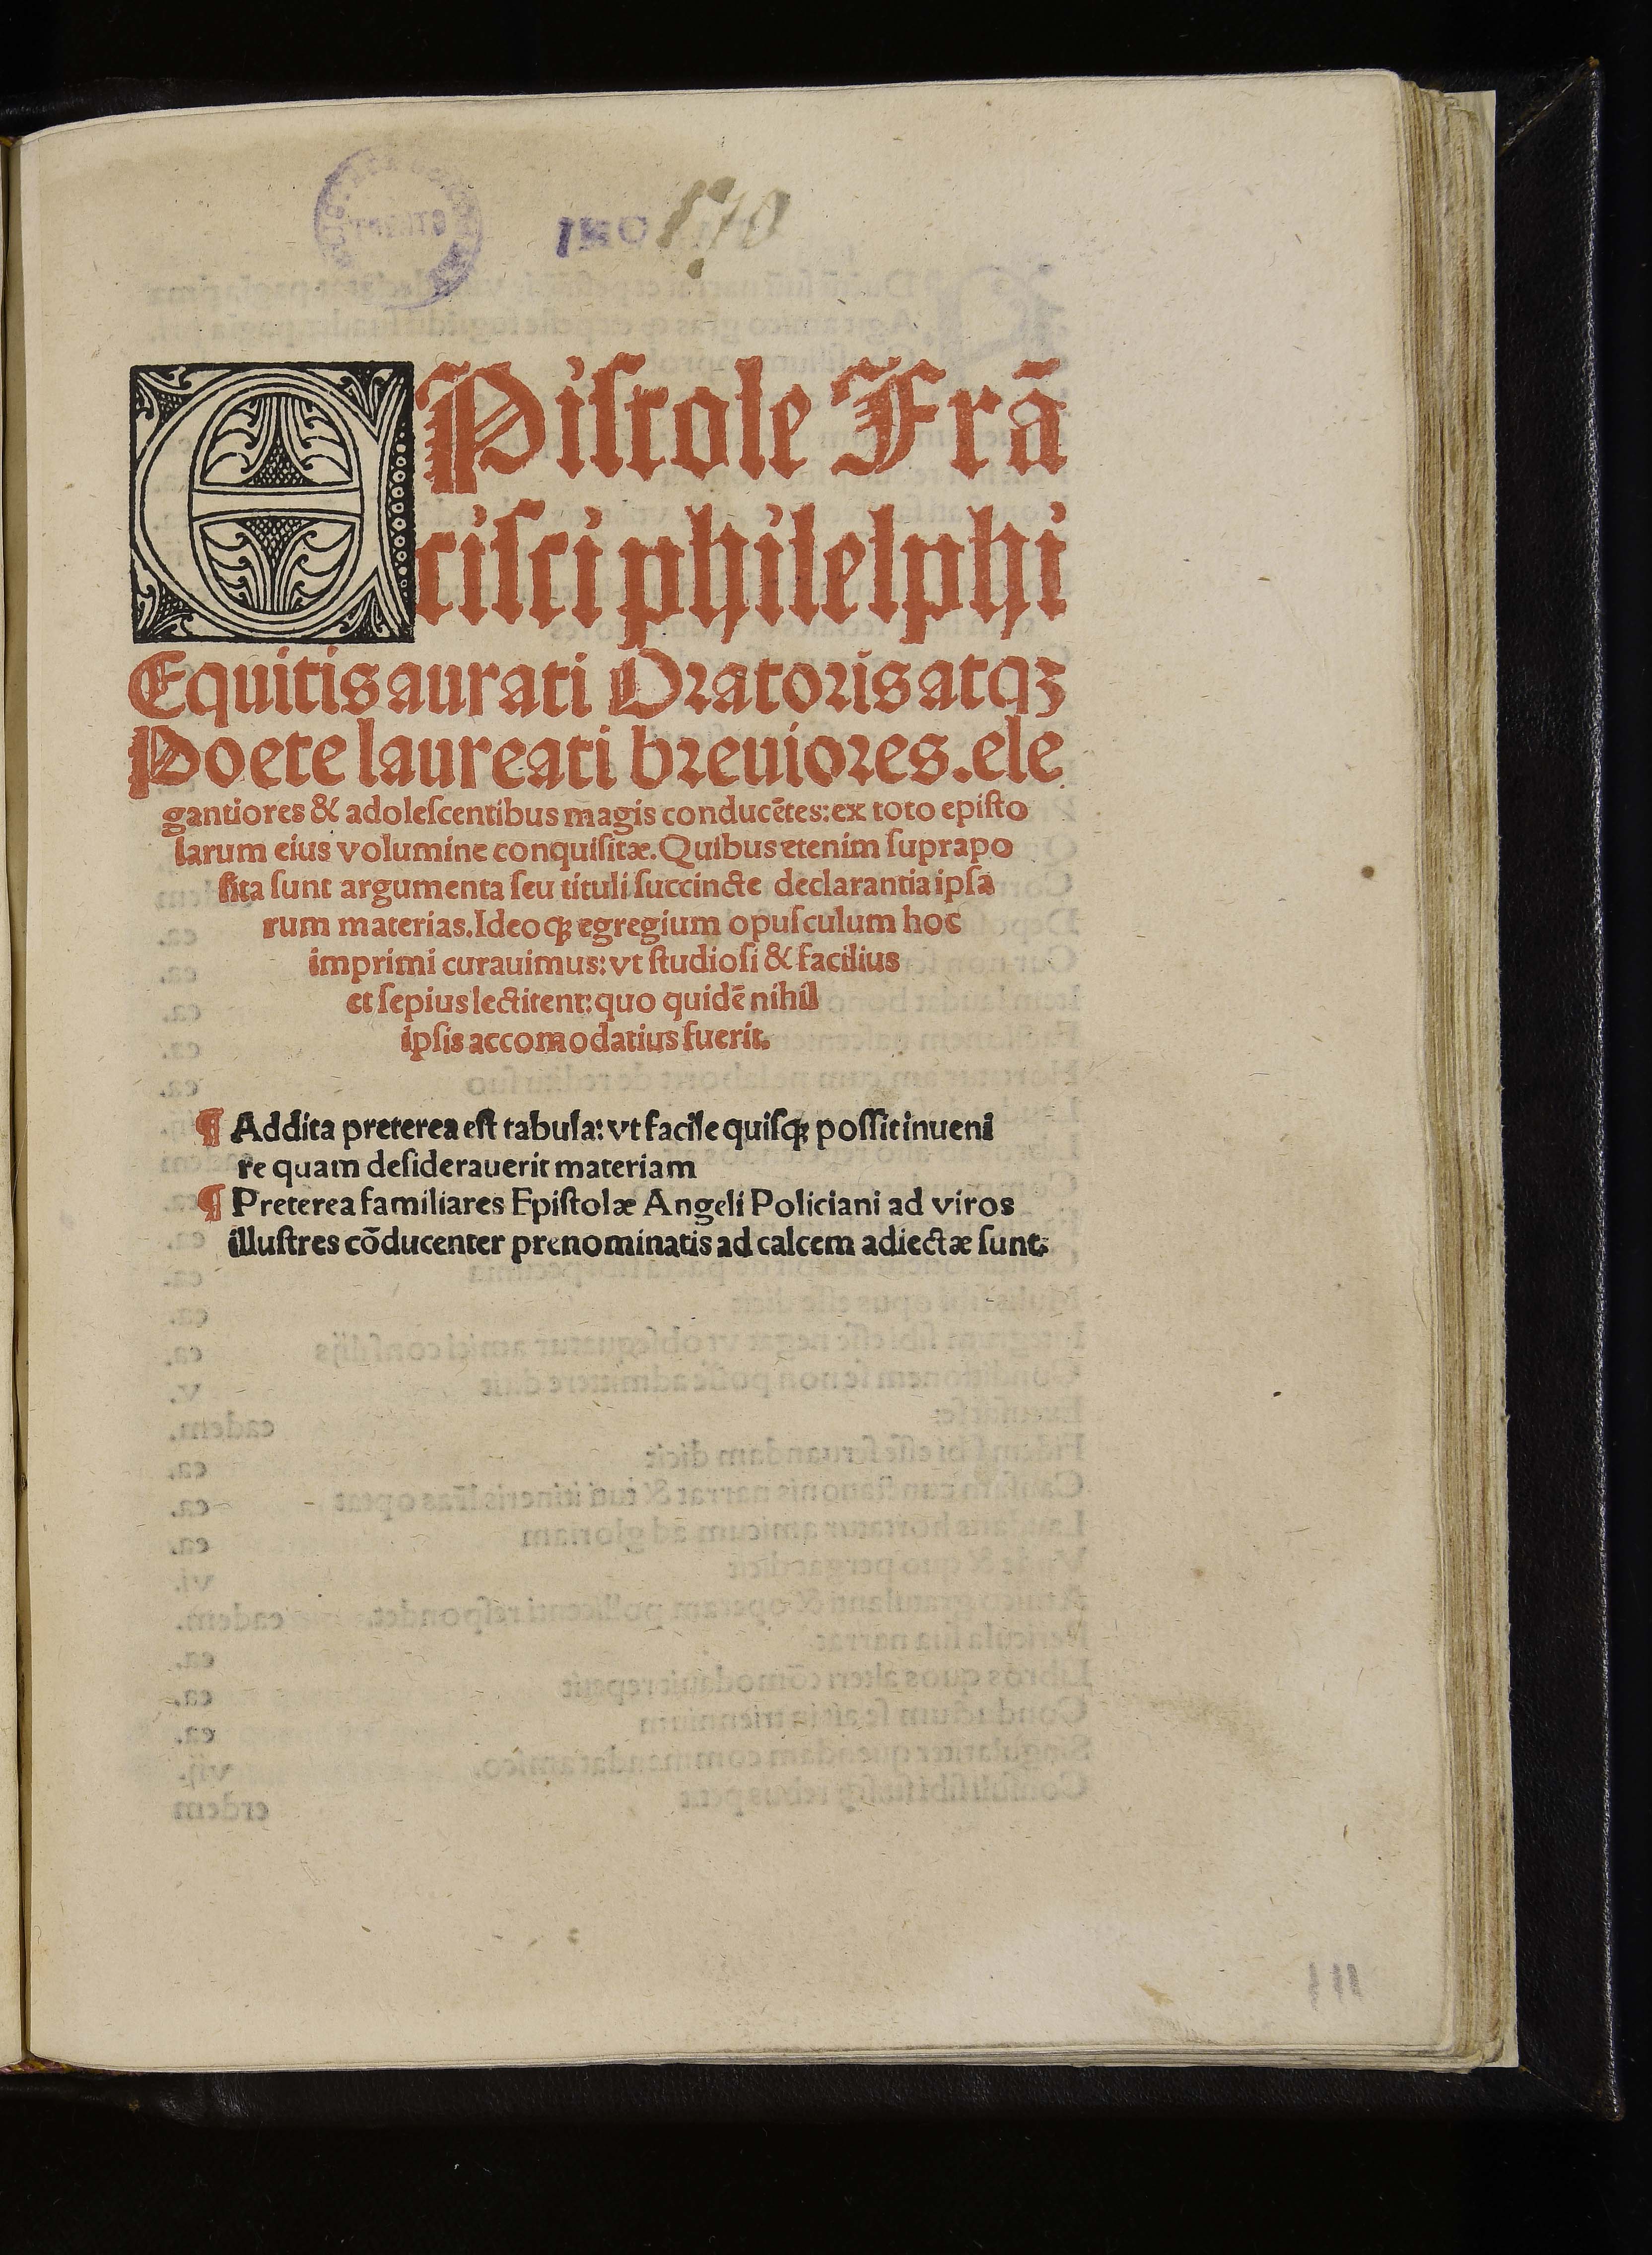 TRENTO
170
EPistole Frã
cisci philelphi
Equitis aurati Oratoris atqꝫ
Poete laureati breuiores. ele
gantiores & adolescentibus magis conducẽtes: ex toto episto
larum eius volumine conquisitæ. Quibus etenim suprapo
sita sunt argumenta seu tituli succincte declarantia ipsa
rum materias. Ideoqꝫ egregium opusculum hoc
imprimi curauimus: vt studiosi & facilius
et sepius lectitent: quo quidẽ nihil
ipsis accomodatius fuerit.
¶ Addita preterea est tabula: vt facile quisqꝫ possit inueni
re quam desiderauerit materiam
¶ Preterea familiares Epistolæ Angeli Policiani ad viros
illustres cõducenter prenominatis ad calcem adiectæ sunt.